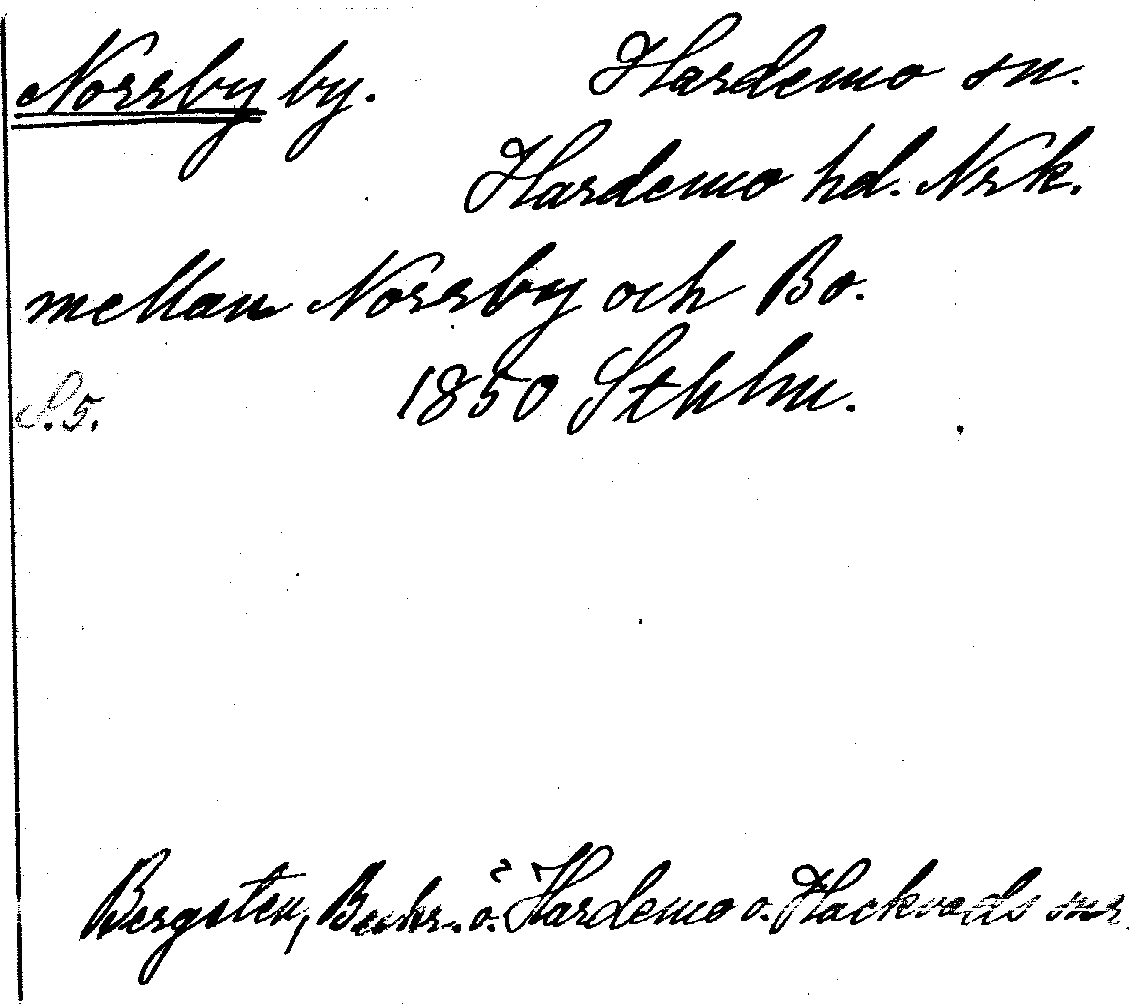 Norrby by. Hardemo sn.
Hardemo hd. Nrk.
mellan Norrby och Bo.
S.5. 1850 Sthlm.
Bergsten, Beskr. ö. Hardemo o. Hackvads snr